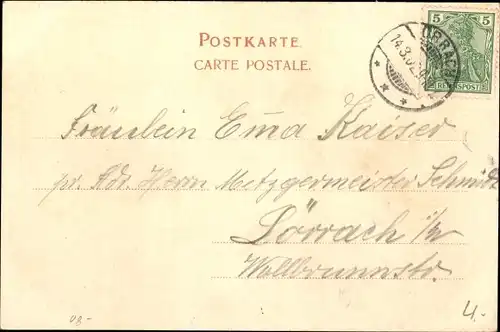 POSTKARTE.
CARTE POSTALE.
5 5
REICHSPOST
LÖRRACH
14.3.02
Fräulein Emma Kaiser
pr. Adr. Herrn Metzgermeister Schmidt
Lörrach i/W
Wallbrunnstr.
4.-